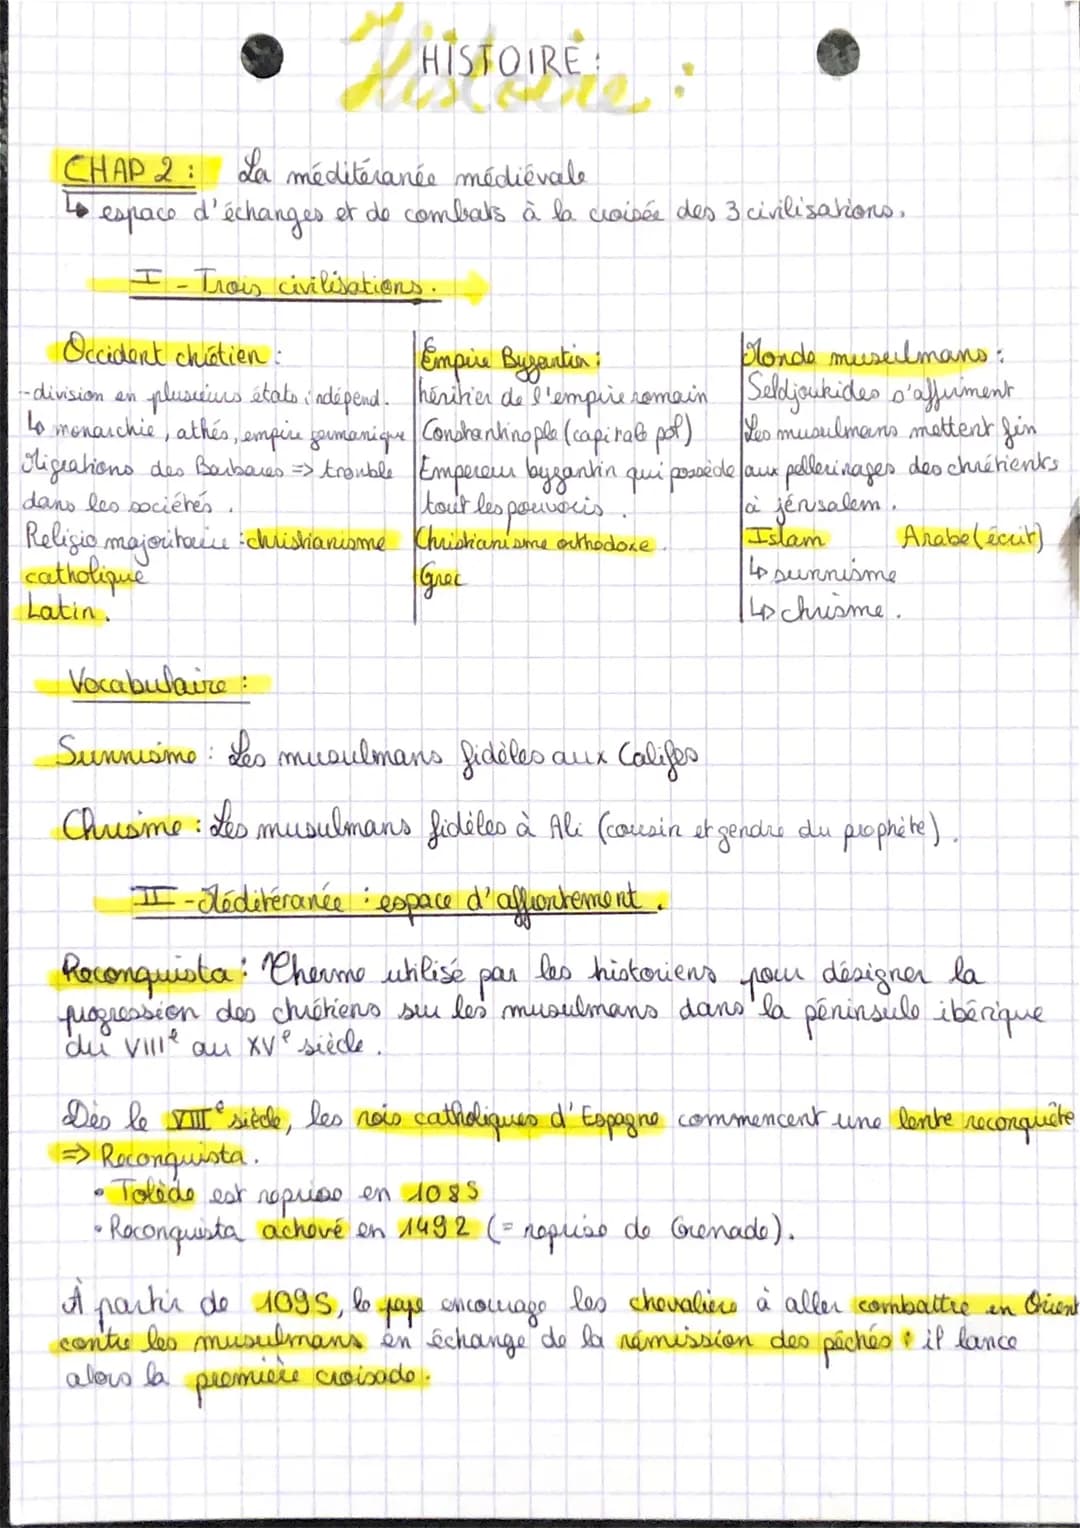 Histoire :
HISTOIRE :
CHAP 2 : La méditéranée médiévale
↳ espace d'échanges et de combats à la croisée des 3 civilisations.
I - Trois civilisations.
Occident chrétien :
-division en plusieurs états indépend.
↳ monarchie, athés, empire germanique
Migrations des Barbares => trouble
dans les sociétés.
Religio majoritaire : christianisme
catholique
Latin.
Empire Byzantin :
héritier de l'empire romain
Constantinople (capitale pol)
Empereur byzantin qui possède
tout les pouvoirs.
Christianisme orthodoxe.
Grec
Monde musulmans :
Seldjoukides s'affirment
Les musulmans mettent fin
aux pellerinages des chrétients
à jérusalem.
Islam Arabe (écrit)
↳ sunnisme
↳ chrisme.
Vocabulaire :
Sunnisme : Les musulmans fidèles aux Califes
Chrisme : Les musulmans fidèles à Ali (cousin et gendre du prophète).
II - Méditéranée : espace d'affrontement.
Reconquista : Therme utilisé par les historiens pour désigner la
progression des chrétiens sur les musulmans dans la péninsule ibérique
du VIIIᵉ au XVᵉ siècle.
Dès le VIIIᵉ siècle, les rois catholiques d'Espagne commencent une lente reconquête
=> Reconquista.
• Tolède est reprise en 1085
• Reconquista achevé en 1492 (= reprise de Grenade).
À partir de 1095, le pape encourage les chevaliers à aller combattre en Orient
contre les musulmans en échange de la rémission des péchés : il lance
alors la première croisade.